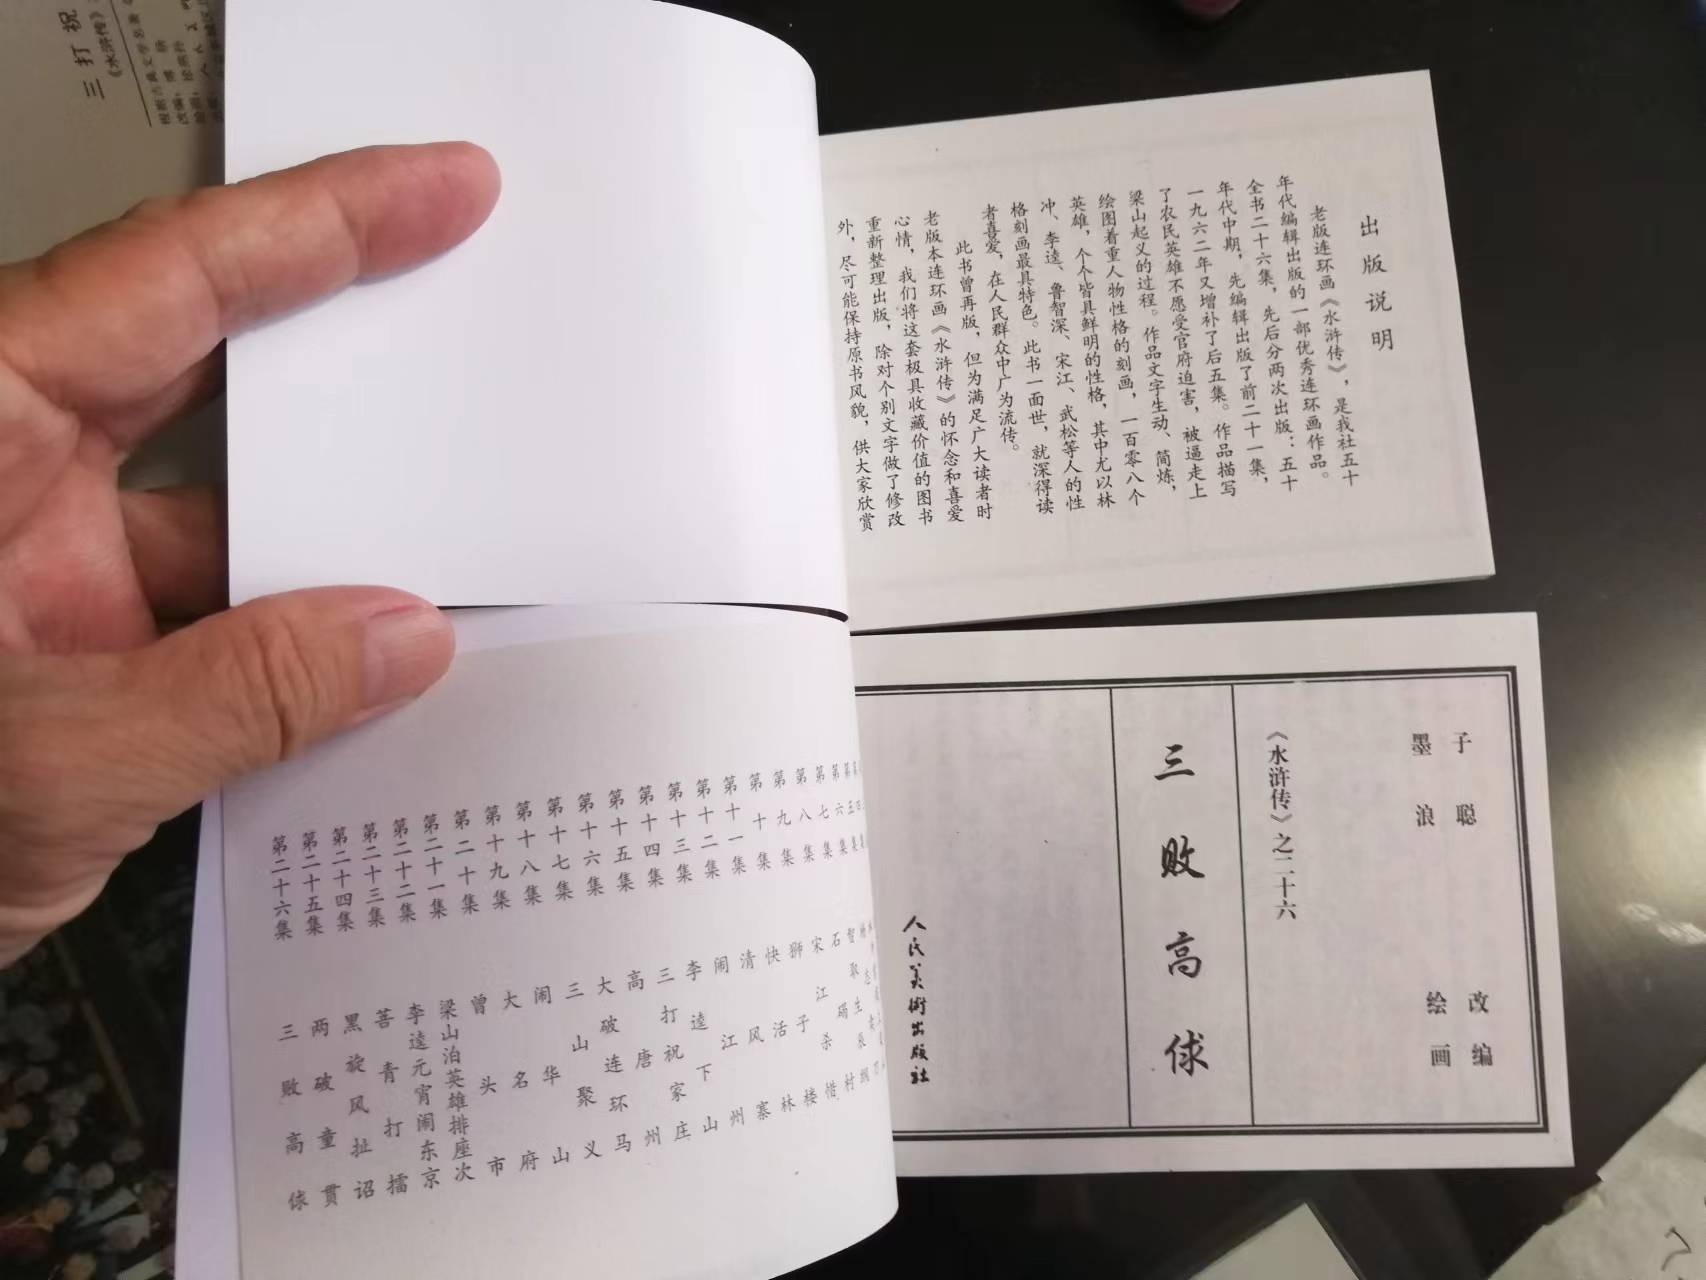 三打祝
《水浒传》
根据古典文学名著
出版说明
老版连环画《水浒传》，是我社五十
年代编辑出版的一部优秀连环画作品。
全书二十六集，先后分两次出版：五十
年代中期，先编辑出版了前二十一集，
一九六二年又增补了后五集。作品描写
了农民英雄不愿受官府迫害，被逼走上
梁山起义的过程。作品文字生动、简炼，
绘图着重人物性格的刻画，一百零八个
英雄，个个皆具鲜明的性格，其中尤以林
冲、李逵、鲁智深、宋江、武松等人的性
格刻画最具特色。此书一面世，就深得读
者喜爱，在人民群众中广为流传。
此书曾再版，但为满足广大读者时
老版本连环画《水浒传》的怀念和喜爱
心情，我们将这套极具收藏价值的图书
重新整理出版，除对个别文字做了修改
外，尽可能保持原书风貌，供大家欣赏
子聪 改编
墨浪 绘画
《水浒传》之二十六
三败高俅
人民美術出版社
第六集 智取生辰纲
第七集 石碣村
第八集 宋江杀惜
第九集 狮子楼
第十集 快活林
第十一集 清风寨
第十二集 闹江州
第十三集 李逵下山
第十四集 三打祝家庄
第十五集 高唐州
第十六集 大破连环马
第十七集 三山聚义
第十八集 闹华山
第十九集 大名府
第二十集 曾头市
第二十一集 梁山泊英雄排座次
第二十二集 李逵元宵闹东京
第二十三集 菩青打擂
第二十四集 黑旋风扯诏
第二十五集 两破童贯
第二十六集 三败高俅